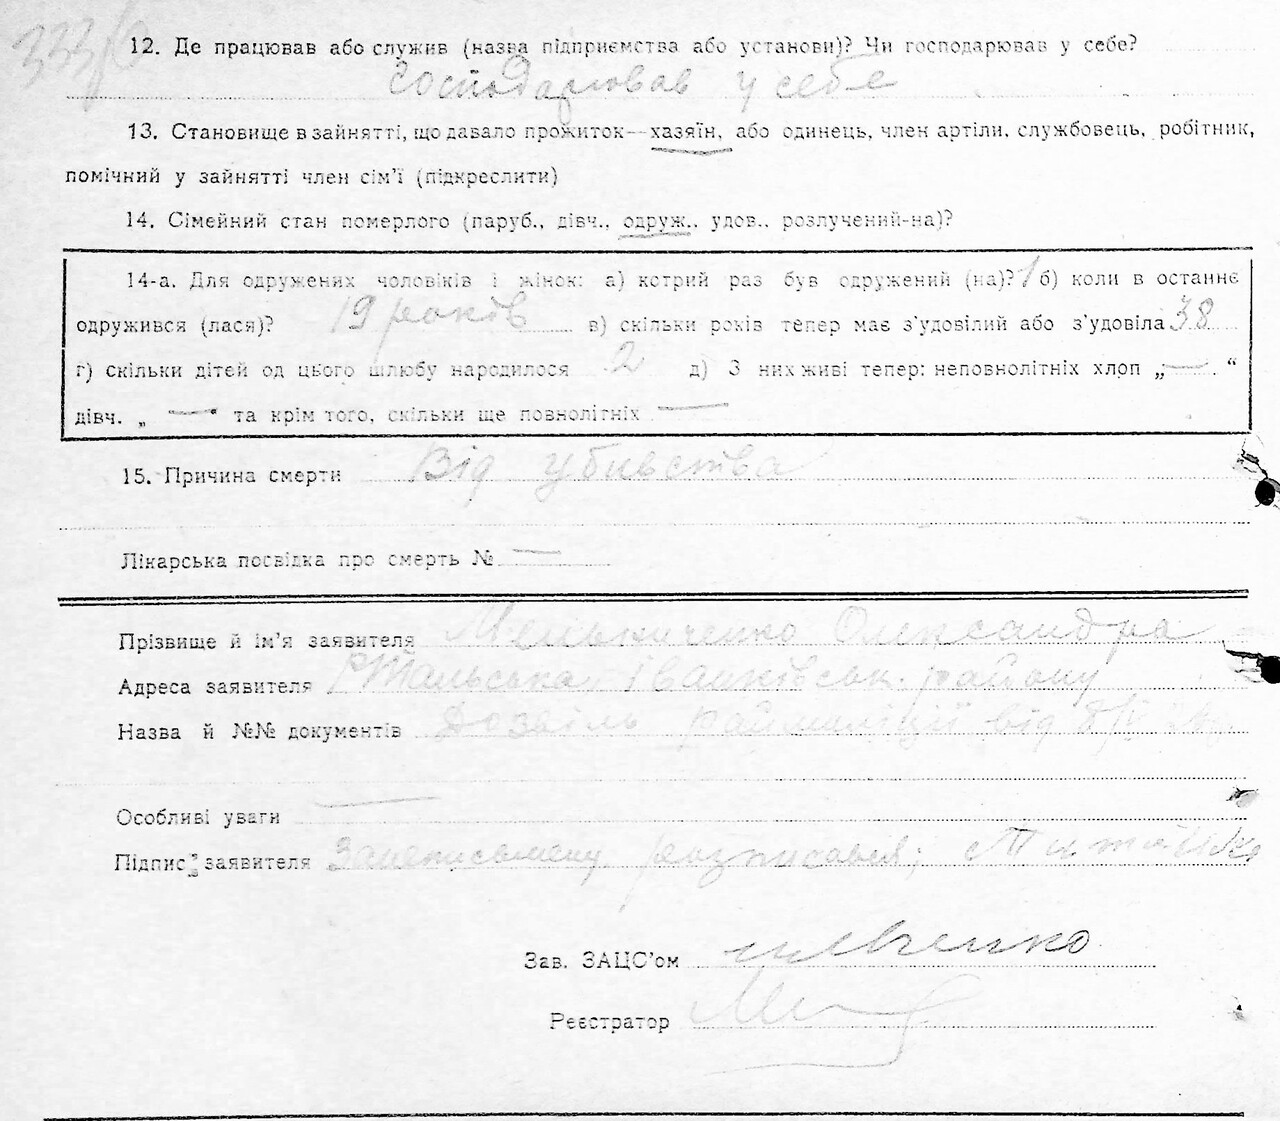 333/6
12. Де працював або служив (назва підприємства або установи)? Чи господарював у себе?
Господарював у себе
13. Становище в зайнятті, що давало прожиток—хазяїн, або одинець, член артіли, службовець, робітник,
помічний у зайнятті член сім'ї (підкреслити)
14. Сімейний стан померлого (паруб., дівч., одруж., удов., розлучений-на)?
14-а. Для одружених чоловіків і жінок: а) котрий раз був одружений (на)? 1 б) коли в останнє
одружився (лася)? 19 років в) скільки років тепер має з'удовілий або з'удовіла 38
г) скільки дітей од цього шлюбу народилося 2 д) З них живі тепер: неповнолітніх хлоп „—.“
дівч. „—“ та крім того, скільки ще повнолітніх —
15. Причина смерти Від убивства
Лікарська посвідка про смерть № —
Прізвище й ім'я заявителя Мельниченко Олександра
Адреса заявителя Тальська Іванківськ. району
Назва й №№ документів Дозвіл райміліції від
Особливі уваги —
Підпис заявителя розписався;
Зав. ЗАЦС'ом
Реєстратор